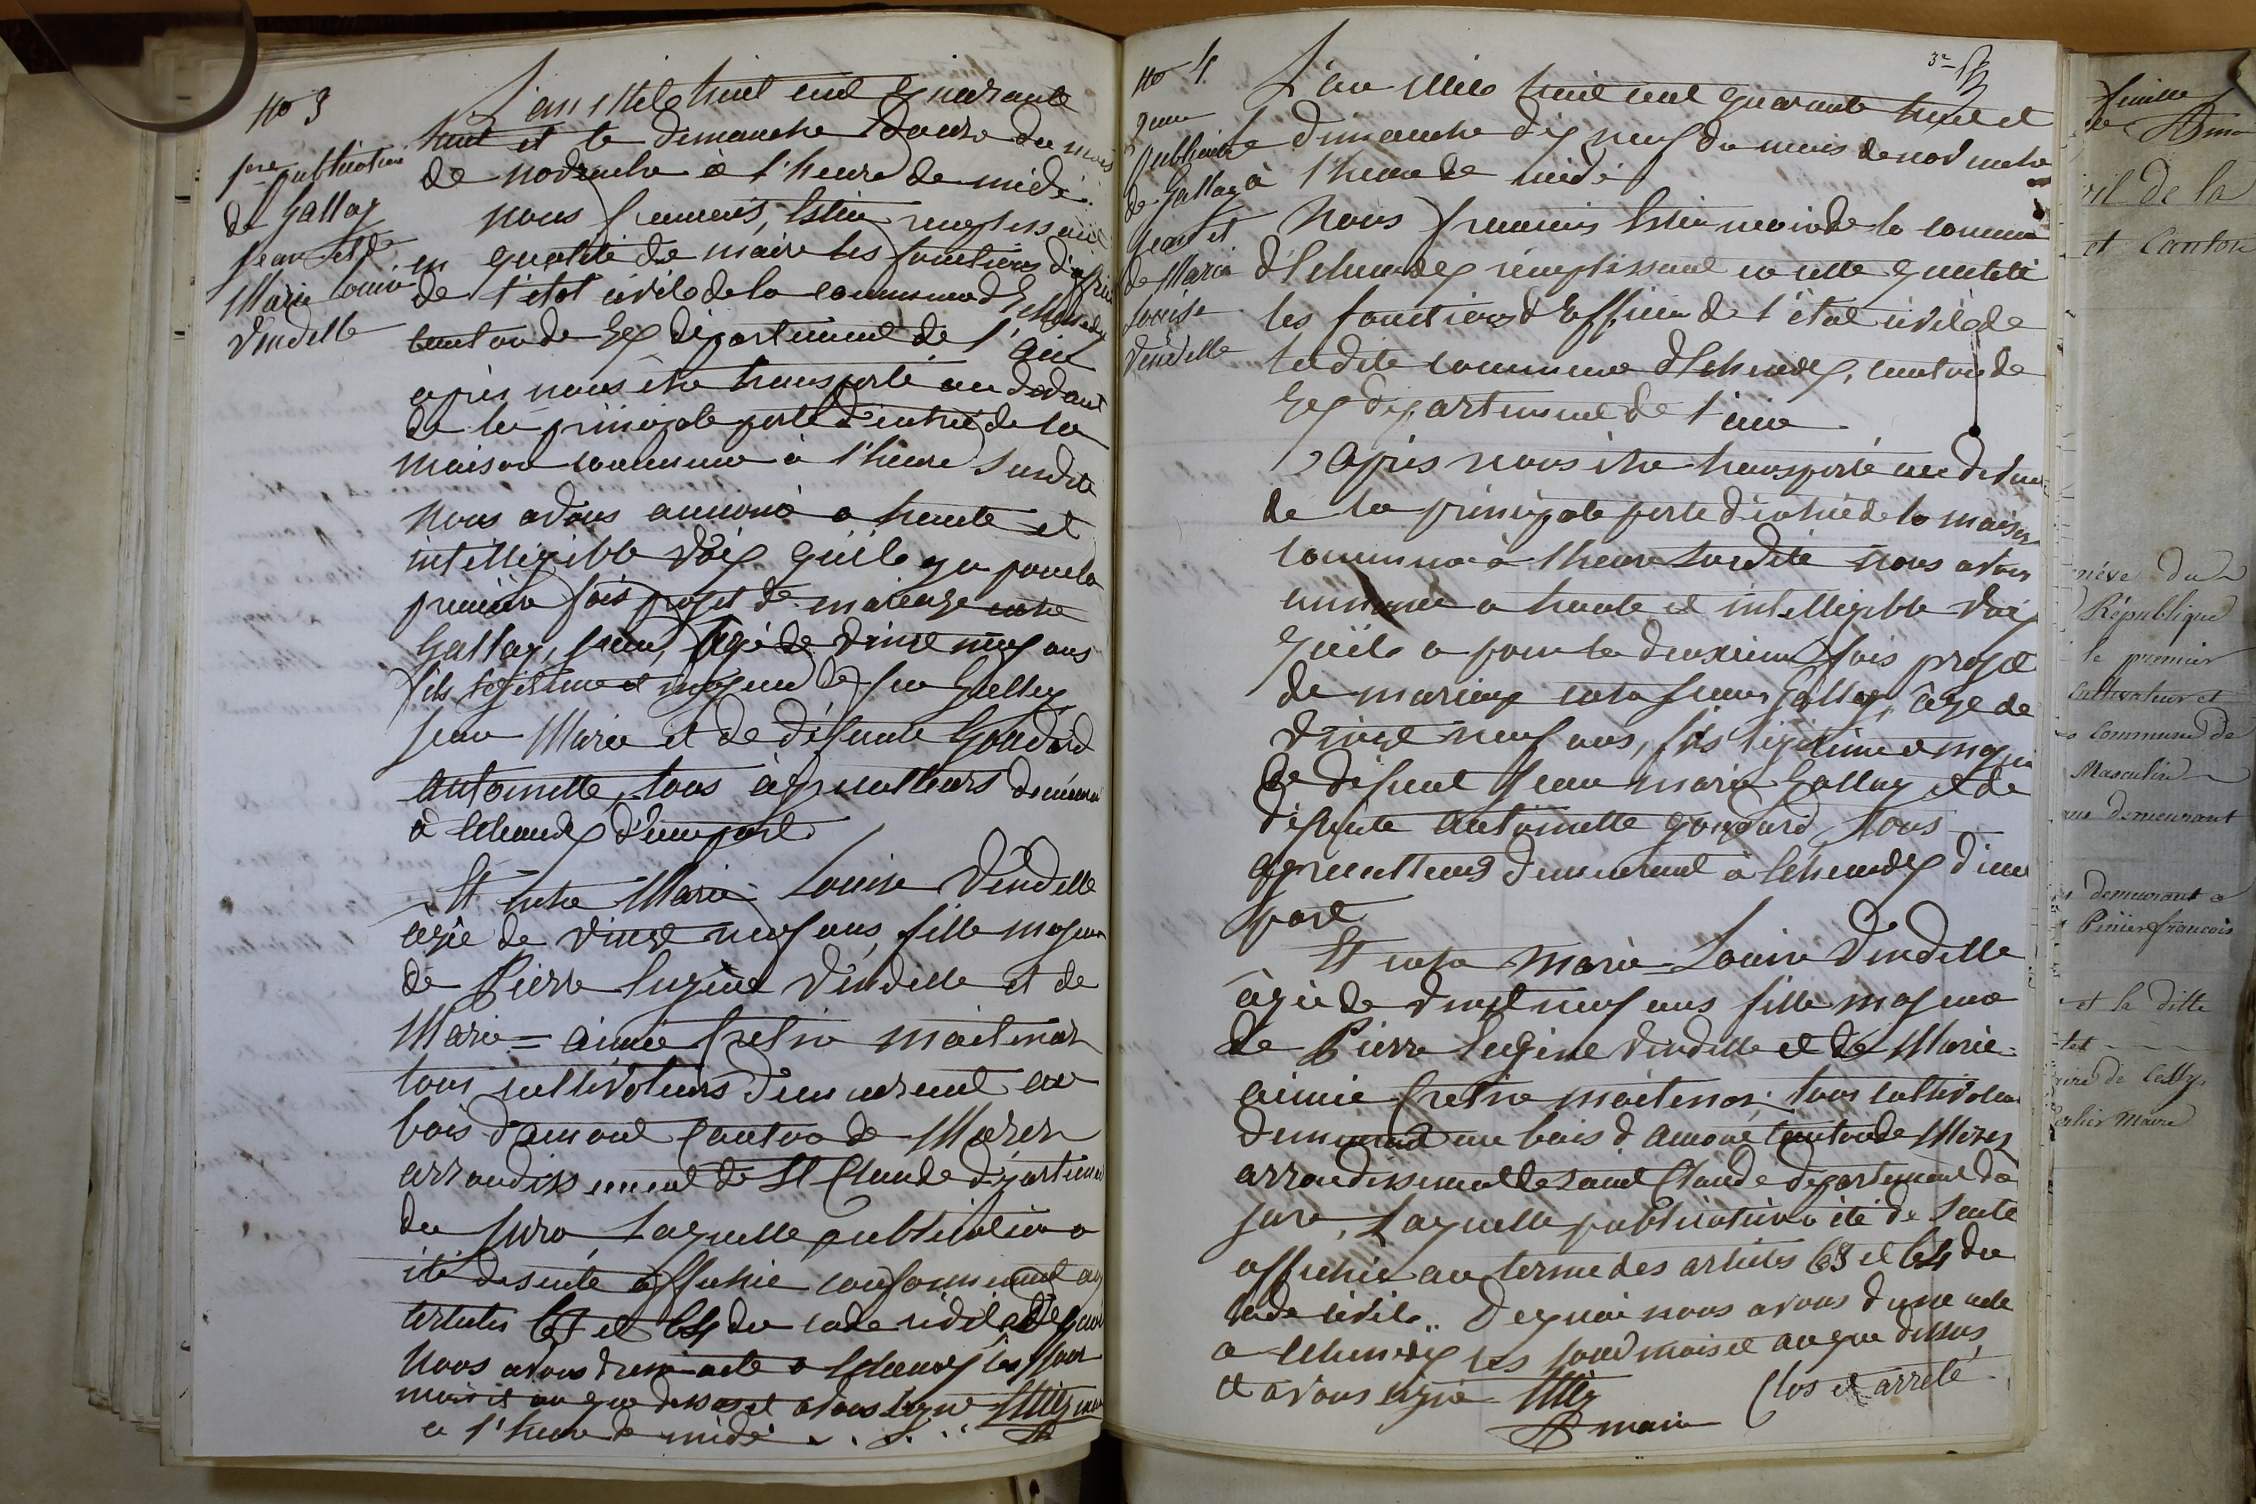 No 3
1re publication
de Gallay
Jean et de
Marie Louise
Vendelle
L'an Mile huit cent quarante
huit et le dimanche douze du mois
de novembre à l'heure de midi
nous francois, remplissant
en qualité de maire les fonctions d'officier
de l'état civile de la commune d'Echenevex
canton de Gex département de l'ain
après nous être transporté au devant
de la principale porte d'entrée de la
maison commune à l'heure susdite
nous avons annoncé a haute et
intelligible voix qu'il y a pour la
première fois projet de mariage entre
Gallay, Jean, agé de vingt neuf ans
fils légitime et majeur de feu Gallay
Jean Marie et de défunte Goudard
antoinette, tous agriculteurs demeurant
à Echenevex d'une part
Et entre Marie Louise Vendelle
agée de vingt neuf ans, fille majeure
de Pierre Eugène Vendelle et de
Marie = aimée
tous cultivateurs demeurant au
bois d'amont Canton de Morez
arrondissement de St Claude département
du Jura, Laquelle publication a
été de suite affichée conformément aux
articles 63 et 64 du code civile De quoi
Nous avons dressé acte a Echenevex les jour
mois et an que dessus et avons signé maire
a l'heure de midi
No 4.
2eme
publication
de Gallay
Jean et
de Marie
Louise
Vendelle
3e
L'an Mile huit cent quarante huit et
le dimanche dix neuf du mois de novembre
à l'heure de midi
Nous francois maire de la commune
d'Echenevex remplissant en cette qualité
les fonctions d'officier de l'état civile de
ladite commune d'Echenevex, canton de
Gex département de l'ain
après nous être transporté au devant
de la principale porte d'entrée de la maison
commune à l'heure susdite nous avons
annoncé a haute et intelligible voix
qu'il a pour la deuxième fois projet
de mariage entre Jean Gallay, âgé de
vingt neuf ans, fils légitime et majeur
de défunt Jean marie Gallay et de
défunte antoinette goudard, tous
agriculteurs demeurant à Echenevex d'une
part
Et entre Marie = Louise Vendelle
agée de vingt neuf ans fille majeure
de Pierre Eugène Vendelle et de Marie
aimée tous cultivateurs
demeurant au bois d'amont canton de Morez
arrondissement de saint Claude département du
jura, Laquelle publication a été de suite
affichée au terme des articles 63 et 64 du
code civile. De quoi nous avons dressé acte
a Echenevex les jour mois et an que dessus
et avons signé
maire
Clos et arrêté
feuille
de
vil de la
et Canton
nève du
République
le premier
Cultivateur et
Commune de
Masculin
ans demeurant
demeurant a
Pinier francois
et la ditte
maire de Cessy
Maire